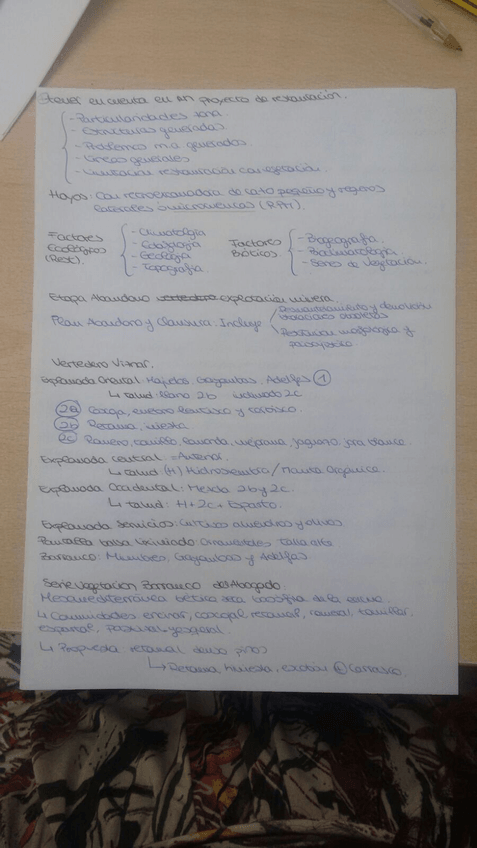 Tener en cuenta en un proyecto de restauración.
- Particularidades zona
- Estructuras generadas
- Problemas m.a generados
- Líneas generales
- Limitación restauración con vegetación.
Hoyos: Con retroexcavadora de cazo pequeño y regueros
laterales (RPM).
Factores Ecológicos (Rest.)
- Climatología
- Edafología
- Geología
- Topografía
Factores Bióticos
- Biogeografía.
- Bioclimatología.
- Series de Vegetación.
Etapa Abandono vertedero explotación minera
Plan Abandono y Clausura. Incluye
Desmantelamiento y demolición
instalaciones obsoletas
morfología y
paisajístico
Vertedero Viznar.
Explanada Oriental: Majuelos, Gayombas, Adelfas ①
↳ talud: llano 2b inclinado 2c
2a Coscoja, enebro, lentisco y torvisco
2b Retama, iniesta
2c Romero, tomillo, lavanda, mejorana, jaguarzo, jara blanca.
Explanada Central = Anterior.
↳ talud (H) Hidrosiembra / Manta Orgánica.
Explanada Occidental: Mezcla 2b y 2c.
↳ talud: H + 2c + Esparto.
Explanada Servicios: Cultivo almendros y olivos
Pantalla balsa lixiviado: Ornamentales talla alta
Barranco: Mimbres, Gayombas y Adelfas
Serie Vegetación Barranco del Abogado.
Mesomediterránea bética seca basófila de la encina.
↳ Comunidades encinar, coscojal, retamal, romeral, tomillar,
espartal, pastizal yesqueral.
↳ Propuesta retamal denso pinos
↳ Retama, hiniesta, ⊕ Carrasco.